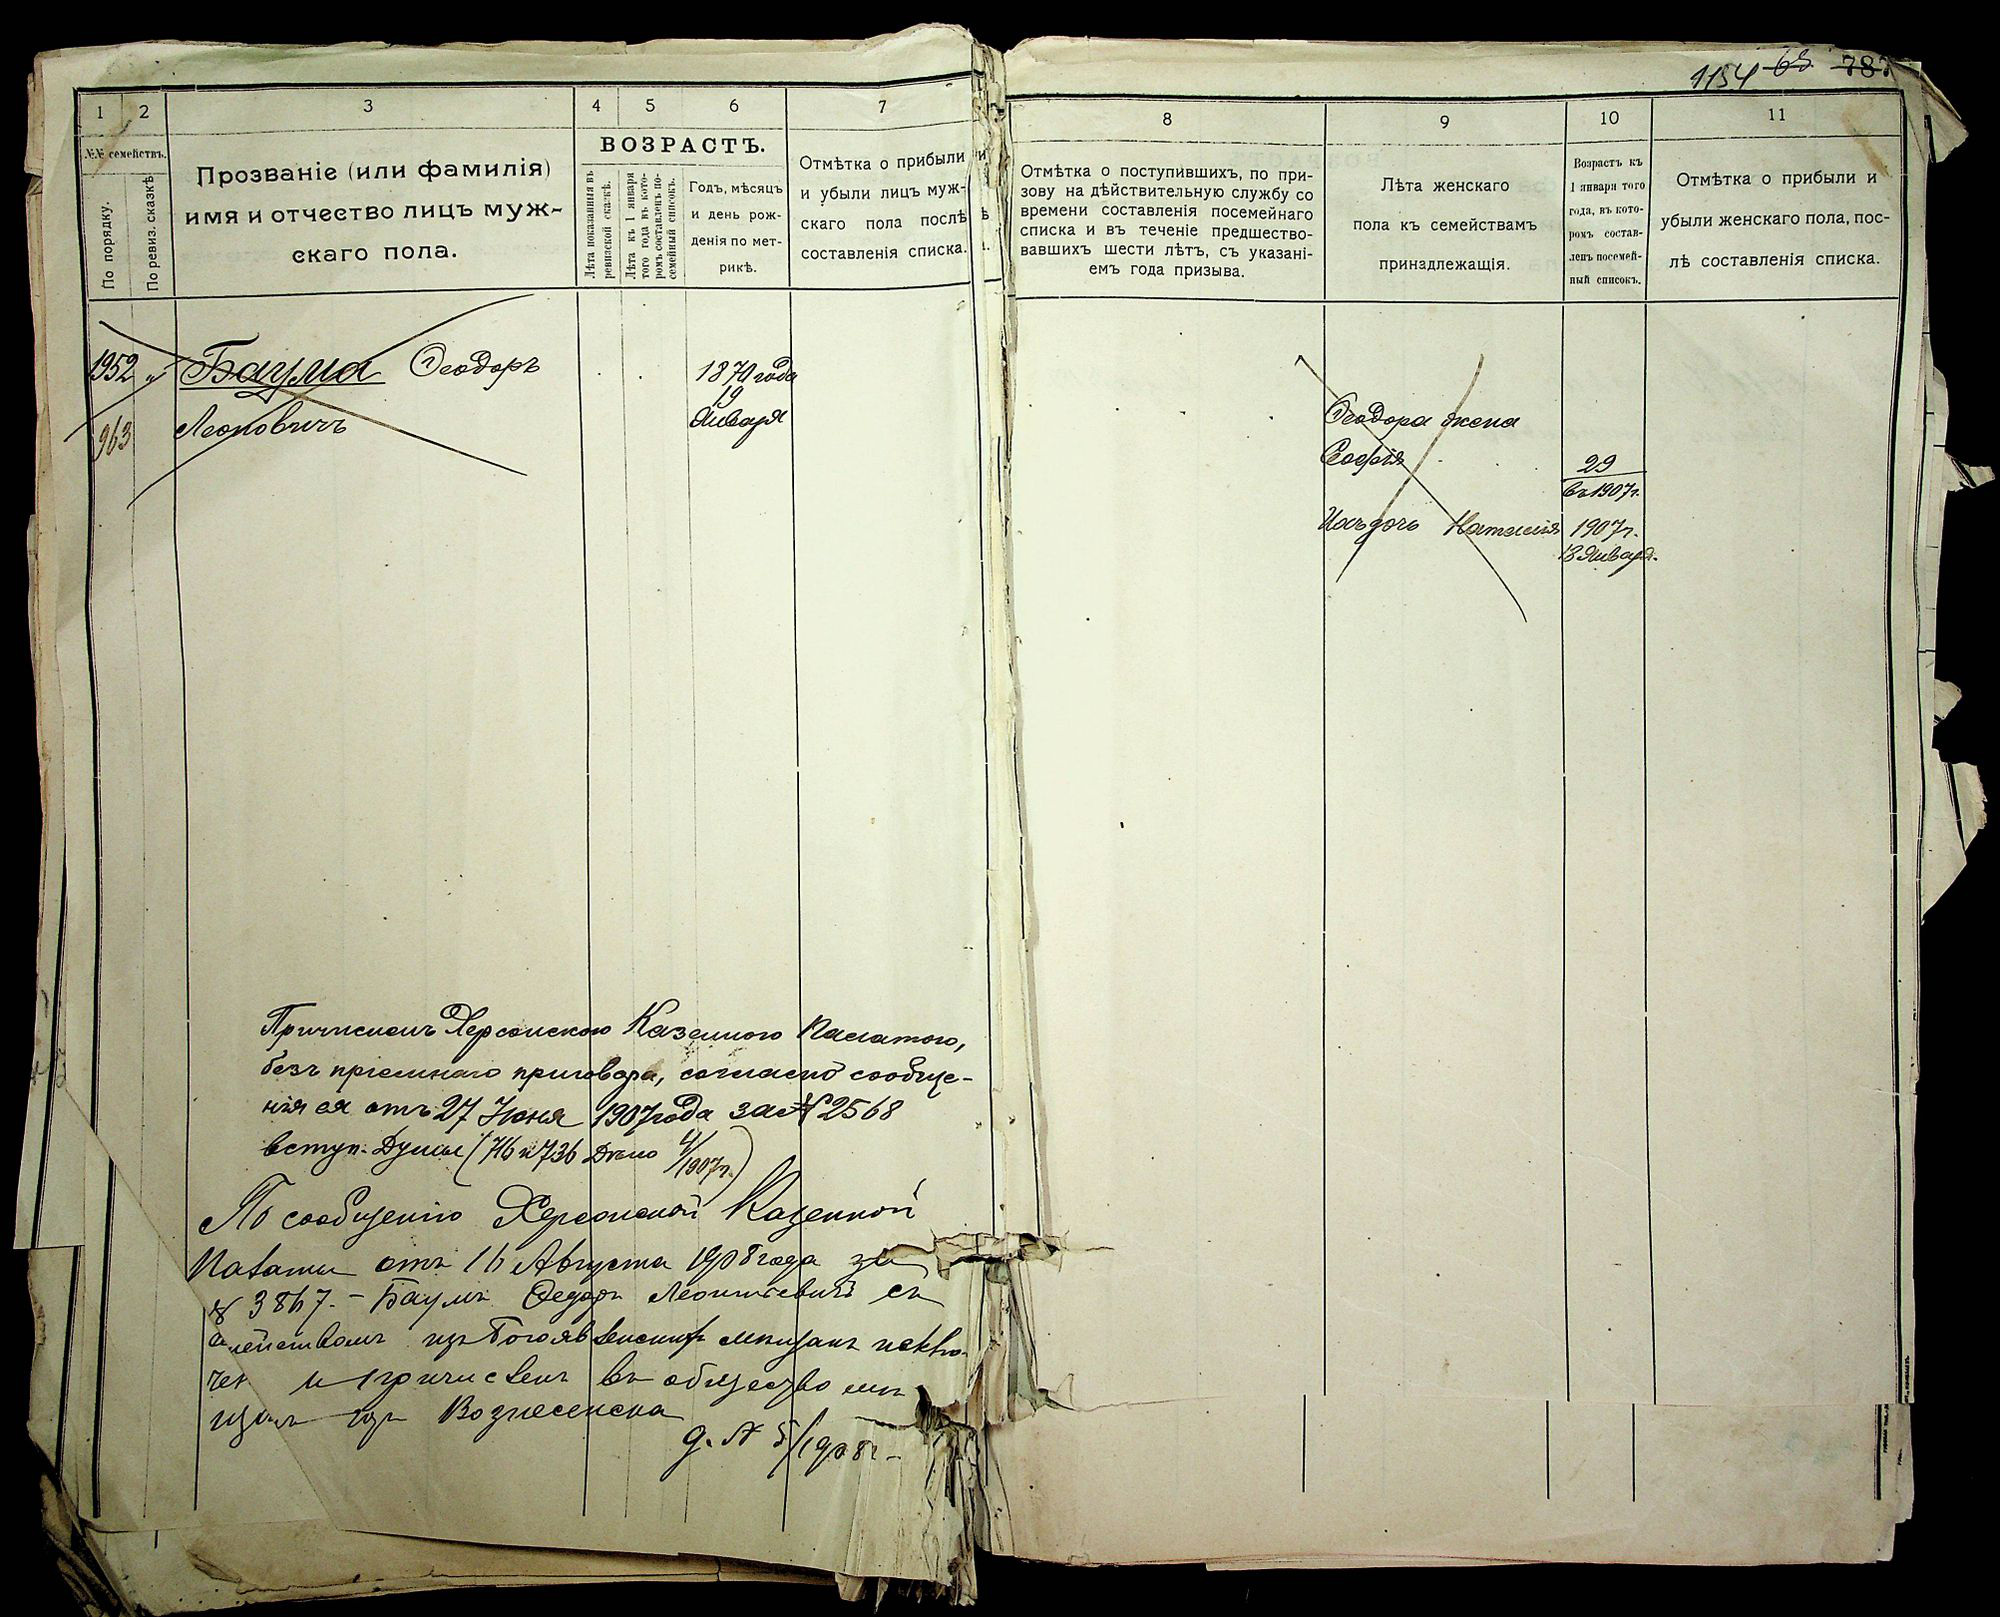 1154 68 787
1 2 3 4 5 6 7
№№ семействъ.
По порядку.
По ревиз. сказкѣ
Прозваніе (или фамилія)
имя и отчество лицъ муж-
скаго пола.
ВОЗРАСТЪ.
Лѣта показанныя въ
ревизской сказкѣ.
Лѣта къ 1 января
того года въ кото-
ромъ составленъ по-
семейный списокъ.
Годъ, мѣсяцъ
и день рож-
денія по мет-
рикѣ.
Отмѣтка о прибыли
и убыли лицъ муж-
скаго пола послѣ
составленія списка.
8 9 10 11
Отмѣтка о поступившихъ, по при-
зову на дѣйствительную службу со
времени составленія посемейнаго
списка и въ теченіе предшество-
вавшихъ шести лѣтъ, съ указані-
емъ года призыва.
Лѣта женскаго
пола къ семействамъ
принадлежащія.
Возрастъ къ
1 января того
года, въ кото-
ромъ состав-
ленъ посемей-
ный списокъ.
Отмѣтка о прибыли и
убыли женскаго пола, пос-
лѣ составленія списка.
1952 „ Баумъ Ѳеодоръ 1870 года
19
963 Леоновичъ Января
Ѳеодора жена
Софія 29
въ 1907 г.
Ихъ дочь Наталія 1907 г.
13 Января.
Причисленъ Херсонскою Казенною Палатою,
безъ пріемнаго приговора, согласно сообще-
нія ея отъ 27 Июня 1907 года за № 2568
вступ. Думы (716 и 736 Дѣло 4/1907 г.)
По сообщенію Херсонской Казенной
Палаты отъ 16 Августа 1908 года за
№ 3867. – Баумъ Ѳедоръ Леонтьевичъ съ
семействомъ изъ Богоявленскихъ мѣщанъ исклю-
чен и причисленъ въ общество мѣ
щанъ гор Вознесенска
д. № 5/1908 г.